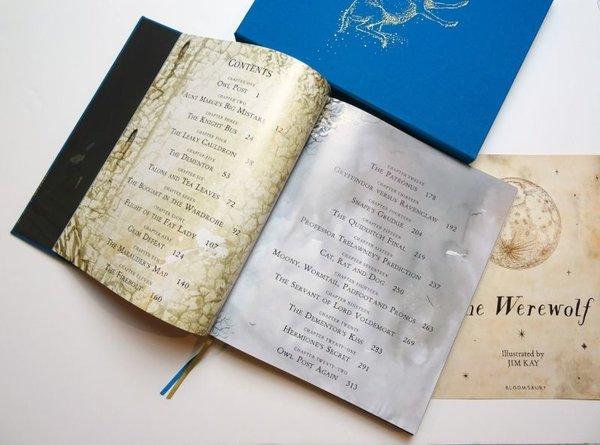 CONTENTS
CHAPTER ONE
OWL POST 1
CHAPTER TWO
AUNT MARGE'S BIG MISTAKE 12
CHAPTER THREE
THE KNIGHT BUS 24
CHAPTER FOUR
THE LEAKY CAULDRON 38
CHAPTER FIVE
THE DEMENTOR 53
CHAPTER SIX
TALONS AND TEA LEAVES 72
CHAPTER SEVEN
THE BOGGART IN THE WARDROBE 92
CHAPTER EIGHT
FLIGHT OF THE FAT LADY 107
CHAPTER NINE
GRIM DEFEAT 124
CHAPTER TEN
THE MARAUDER'S MAP 140
CHAPTER ELEVEN
THE FIREBOLT 160
CHAPTER TWELVE
THE PATRONUS 178
CHAPTER THIRTEEN
GRYFFINDOR VERSUS RAVENCLAW 192
CHAPTER FOURTEEN
SNAPE'S GRUDGE 204
CHAPTER FIFTEEN
THE QUIDDITCH FINAL 219
CHAPTER SIXTEEN
PROFESSOR TRELAWNEY'S PREDICTION 237
CHAPTER SEVENTEEN
CAT, RAT AND DOG 250
CHAPTER EIGHTEEN
MOONY, WORMTAIL, PADFOOT AND PRONGS 263
CHAPTER NINETEEN
THE SERVANT OF LORD VOLDEMORT 269
CHAPTER TWENTY
THE DEMENTOR'S KISS 283
CHAPTER TWENTY-ONE
HERMIONE'S SECRET 291
CHAPTER TWENTY-TWO
OWL POST AGAIN 313
he Werewolf
Illustrated by
JIM KAY
BLOOMSBURY